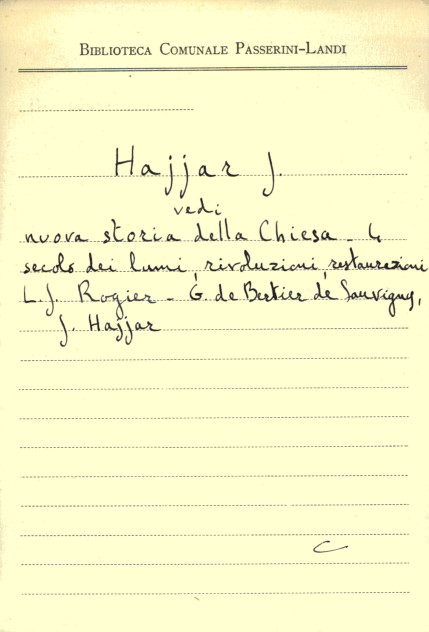 BIBLIOTECA COMUNALE PASSERINI-LANDI
Hajjar J.
vedi
nuova storia della Chiesa - 4
secolo dei lumi, rivoluzioni, restaurazioni
L. J. Rogier - G. de Bertier de Sauvigny,
J. Hajjar
C